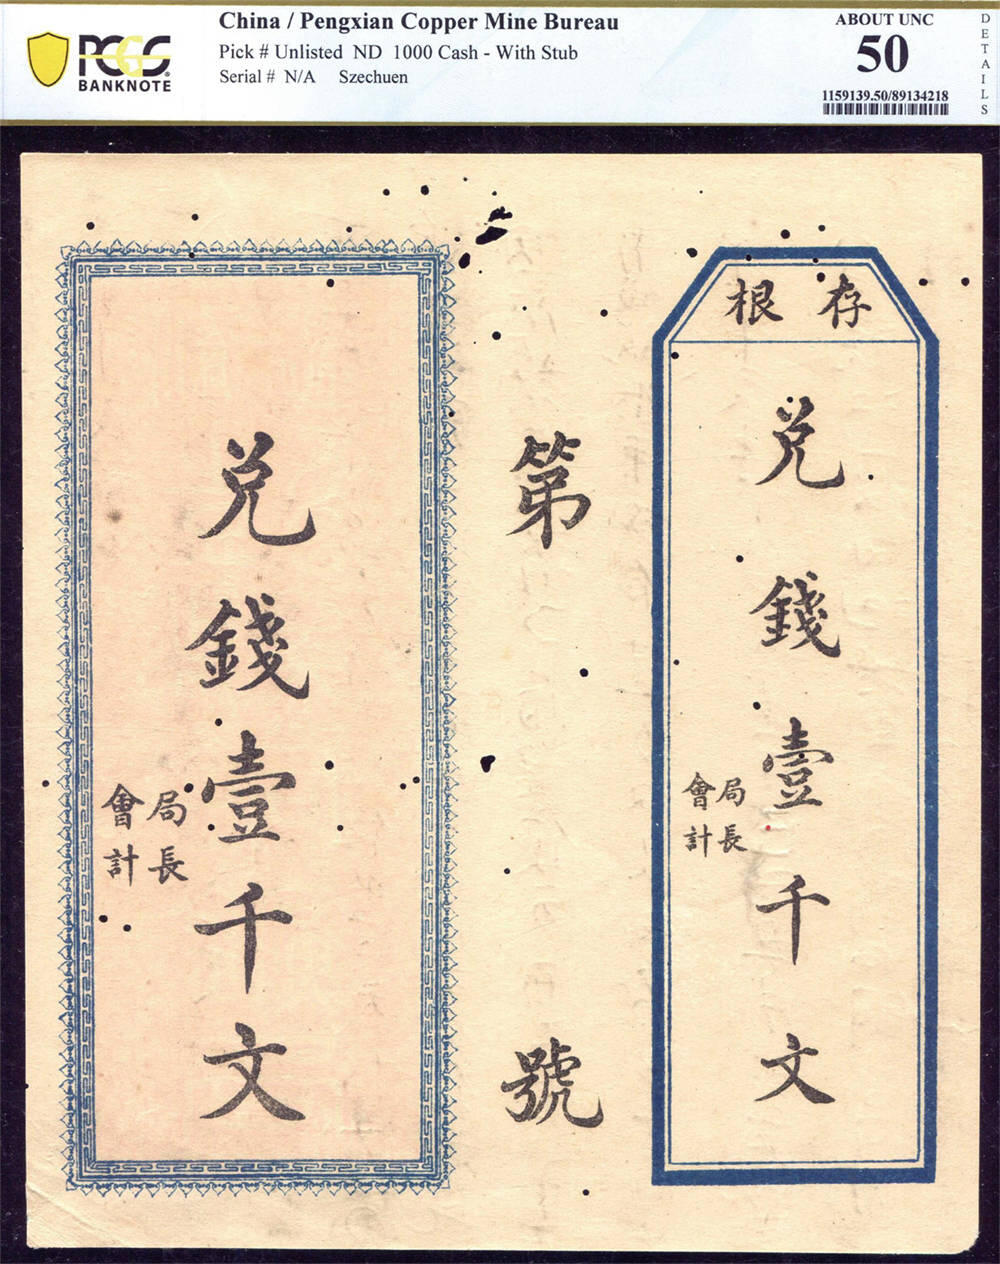 China / Pengxian Copper Mine Bureau
Pick # Unlisted ND 1000 Cash - With Stub
Serial # N/A Szechuen
PCGS
BANKNOTE
ABOUT UNC
50
1159139.50/89134218
DETAILS
存根
兑錢壹千文
局長
會計
第號
兑錢壹千文
局長
會計